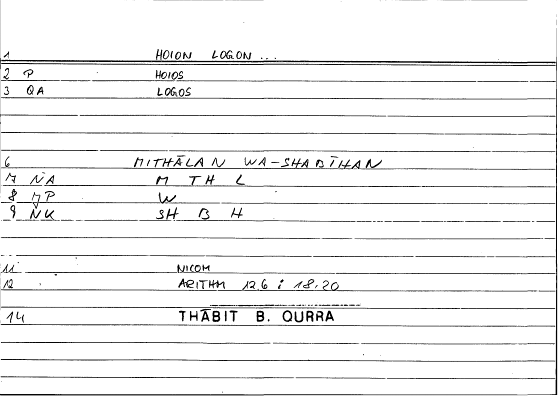 1 HOION LOGON ...
2 P HOIOS
3 QA LOGOS
6 MITHĀLAN WA-SHABĪHAN
7 NA M TH L
8 MP W
9 NK SH B H
11 NICOM
12 ARITHM 12.6 ; 18.20
14 THĀBIT B. QURRA